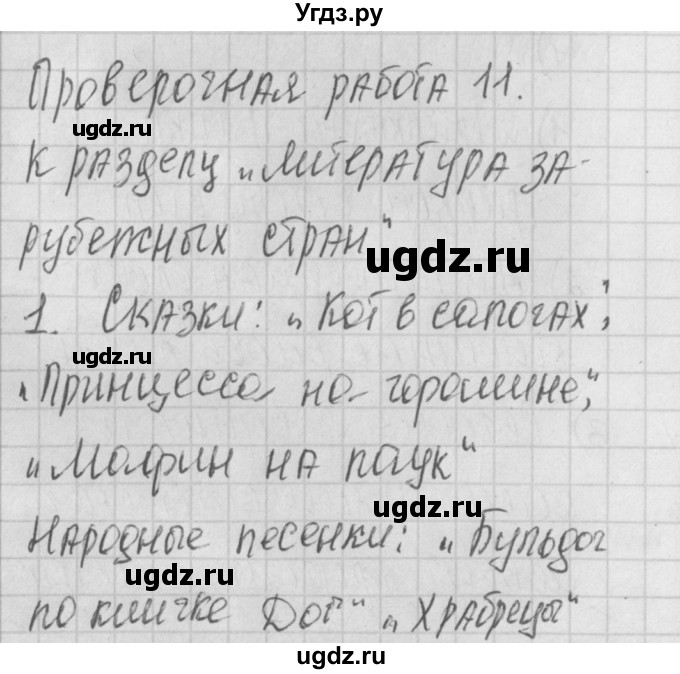 Угдз.ру
Проверочная работа 11.
ugdz.ru
К разделу „Литература за-
рубежных стран"
ugdz.ru
1. Сказки: „Кот в сапогах",
ugdz.ru
„Принцесса на горошине",
„Мафин на паук"
ugdz.ru
Народные песенки: „Бульдог
ugdz.ru
по кличке Дог" „Храбрецы"
ugdz.ru